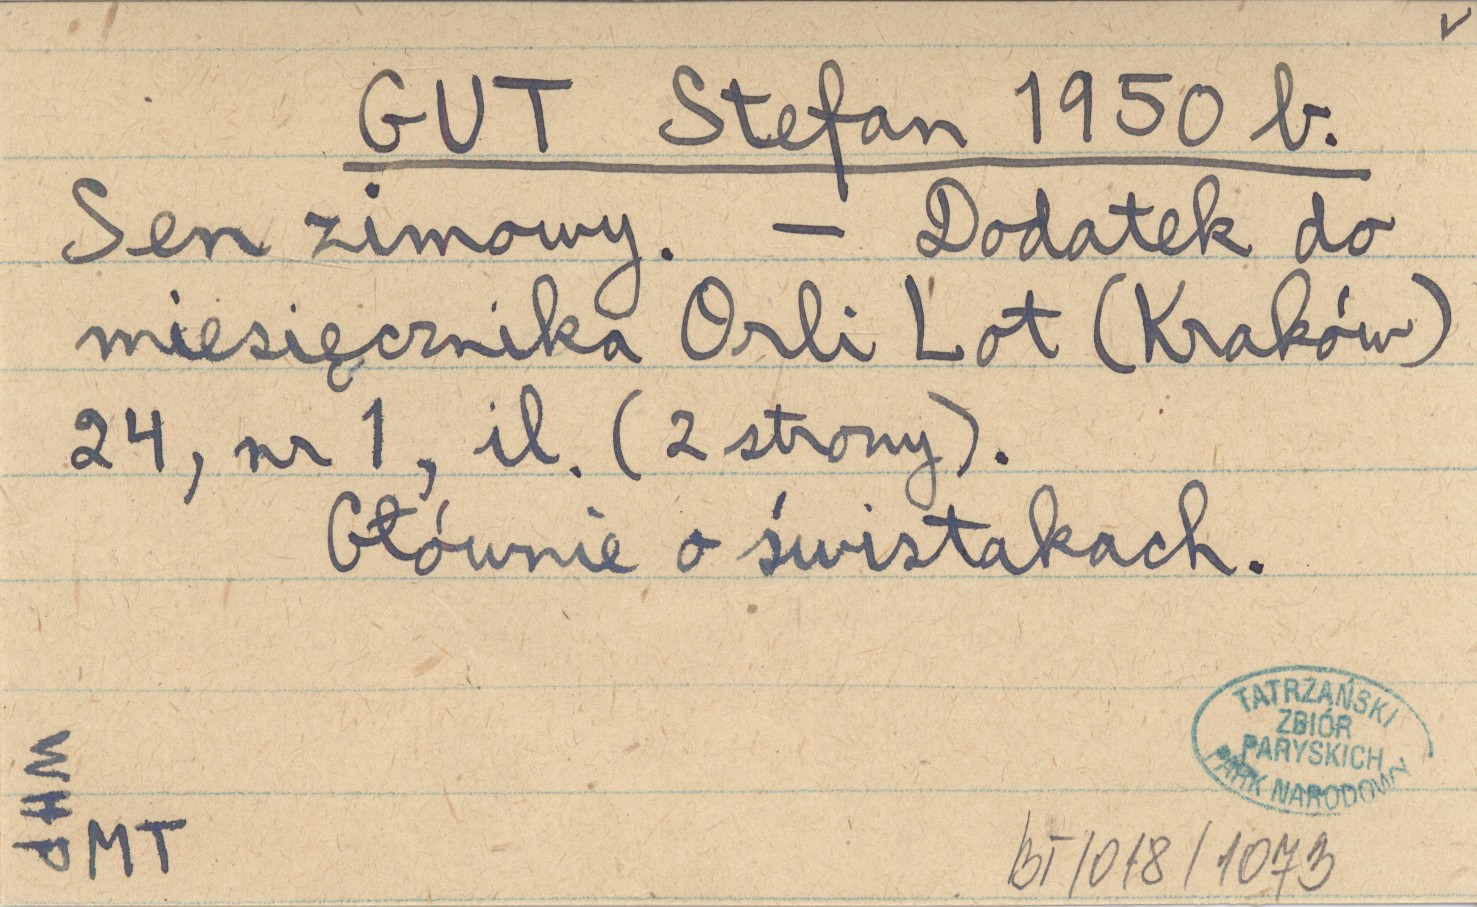 ✓
GUT Stefan 1950 b.
Sen zimowy. — Dodatek do
miesięcznika Orli Lot (Kraków)
24, nr 1, il. (2 strony).
Głównie o świstakach.
TATRZAŃSKI
ZBIÓR
PARYSKICH
PARK NARODOWY
WHP
MT
BT/018/1073